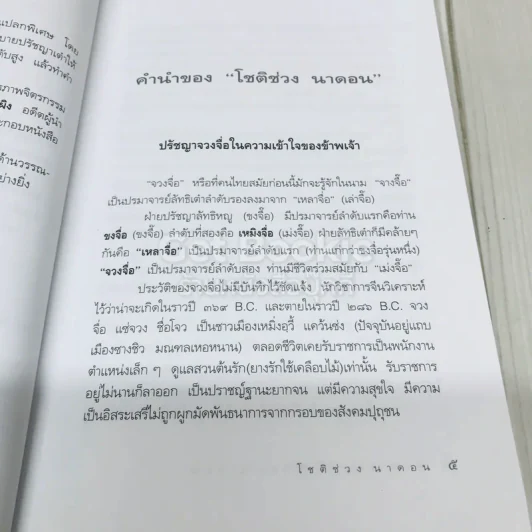 นปลกพิเศษ โดย
บายปรัชญาเต๋าให้
ดับสูง แล้วทำคำ
ภาพจิตรกรรม
ผิง อดีตผู้นำ
ะกอบหนังสือ
ด้านวรรณ-
ย่างยิ่ง
คำนำของ “โชติช่วง นาดอน”
ปรัชญาจวงจื่อในความเข้าใจของข้าพเจ้า
“จวงจื่อ” หรือที่คนไทยสมัยก่อนนี้มักจะรู้จักในนาม “จางจื๊อ”
เป็นปรมาจารย์ลัทธิเต๋าลำดับรองลงมาจาก “เหลาจื่อ” (เล่าจื๊อ)
ฝ่ายปรัชญาลัทธิหญู (ขงจื๊อ) มีปรมาจารย์ลำดับแรกคือท่าน
ขงจื่อ (ขงจื๊อ) ลำดับที่สองคือ เหมิงจื่อ (เม่งจื๊อ) ฝ่ายลัทธิเต๋าก็มีคล้ายๆ
กันคือ “เหลาจื่อ” เป็นปรมาจารย์ลำดับแรก (ท่านแก่กว่าขงจื๊อรุ่นหนึ่ง)
“จวงจื่อ” เป็นปรมาจารย์ลำดับสอง ท่านมีชีวิตร่วมสมัยกับ “เม่งจื๊อ”
ประวัติของจวงจื่อไม่มีบันทึกไว้ชัดแจ้ง นักวิชาการจีนวิเคราะห์
ไว้ว่าน่าจะเกิดในราวปี ๓๖๙ B.C. และตายในราวปี ๒๘๖ B.C. จวง
จื่อ แซ่จวง ชื่อโจว เป็นชาวเมืองเหมิ่งอุวี้ แคว้นซ่ง (ปัจจุบันอยู่แถบ
เมืองซางชิว มณฑลเหอหนาน) ตลอดชีวิตเคยรับราชการเป็นพนักงาน
ตำแหน่งเล็กๆ ดูแลสวนต้นรัก(ยางรักใช้เคลือบไม้)เท่านั้น รับราชการ
อยู่ไม่นานก็ลาออก เป็นปราชญ์ฐานะยากจน แต่มีความสุขใจ มีความ
เป็นอิสระเสรีไม่ถูกผูกมัดพันธนาการจากกรอบของสังคมปุถุชน
โชติช่วง นาดอน ๕